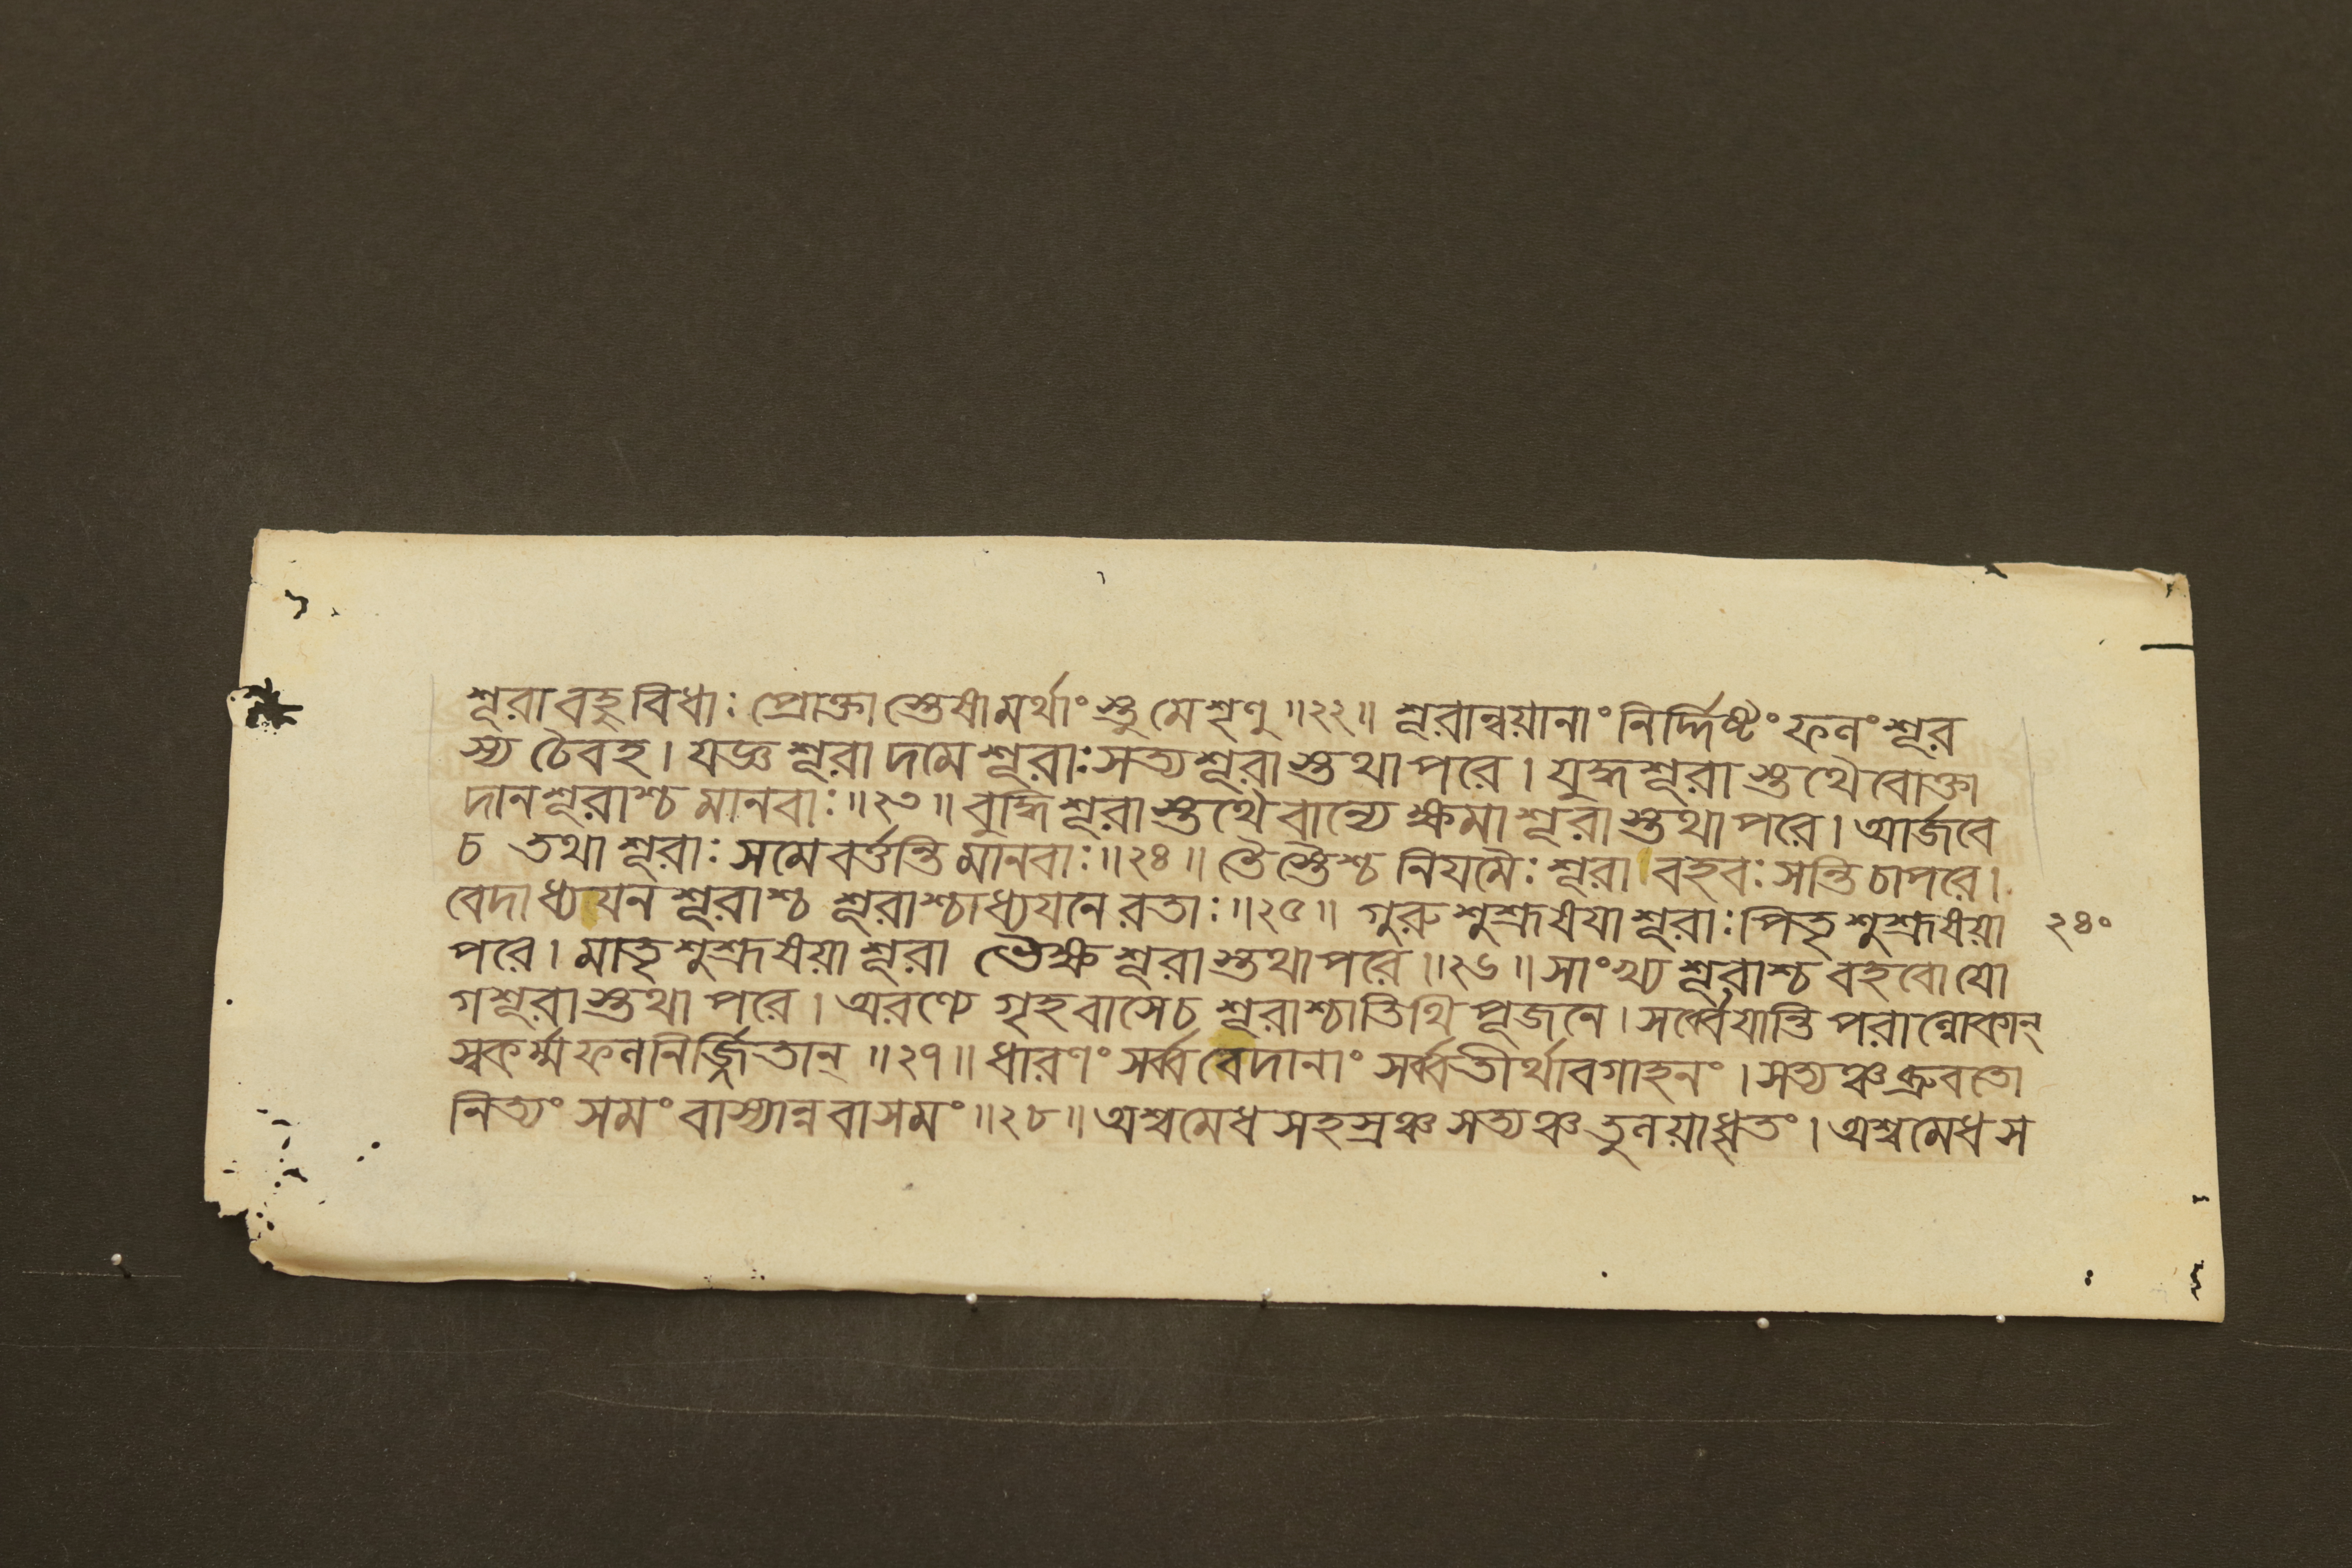 শূরাবহুবিধাঃ প্রোক্তাস্তেষামর্থাংস্তুমেশৃণু॥২২॥ শূরান্বয়ানাং নির্দ্দিষ্টং ফলং শূর
স্য চৈবহ। যজ্ঞশূরা দমেশূরাঃ সত্যশূরাস্তথাপরে। যুদ্ধশূরাস্তথৈবোক্তা
দানশূরাশ্চ মানবাঃ॥২৩॥ বুদ্ধিশূরাস্তথৈবান্যে ক্ষমাশূরাস্তথাপরে। আর্জবে
চ তথা শূরাঃ সমেবর্ত্তন্তি মানবাঃ॥২৪॥ তৈস্তৈশ্চ নিযমৈঃ শূরা বহবঃ সন্তি চাপরে।
বেদাধ্যযনশূরাশ্চ শূরাশ্চাধ্যযনে রতাঃ॥২৫॥ গুরুশুশ্রূষযাশূরাঃ পিতৃশুশ্রূষয়া ২৪০
পরে। মাতৃশুশ্রূষয়াশূরা ভৈক্ষশূরাস্তথাপরে॥২৬॥ সাংখ্যশূরাশ্চ বহবোযো
গশূরাস্তথাপরে। অরণ্যে গৃহবাসেচ শূরাশ্চাতিথিপূজনে। সর্ব্বেযান্তি পরাল্লোকান্
স্বকর্ম্মফলনির্জ্জিতান্॥২৭॥ ধারণং সর্ব্ববেদানাং সর্ব্বতীর্থাবগাহনং। সত্যঞ্চব্রুবতো
নিত্যং সমং বাস্যান্নবাসমং॥২৮॥ অশ্বমেধসহস্রঞ্চ সত্যঞ্চতুলয়াধৃতং। অশ্বমেধস